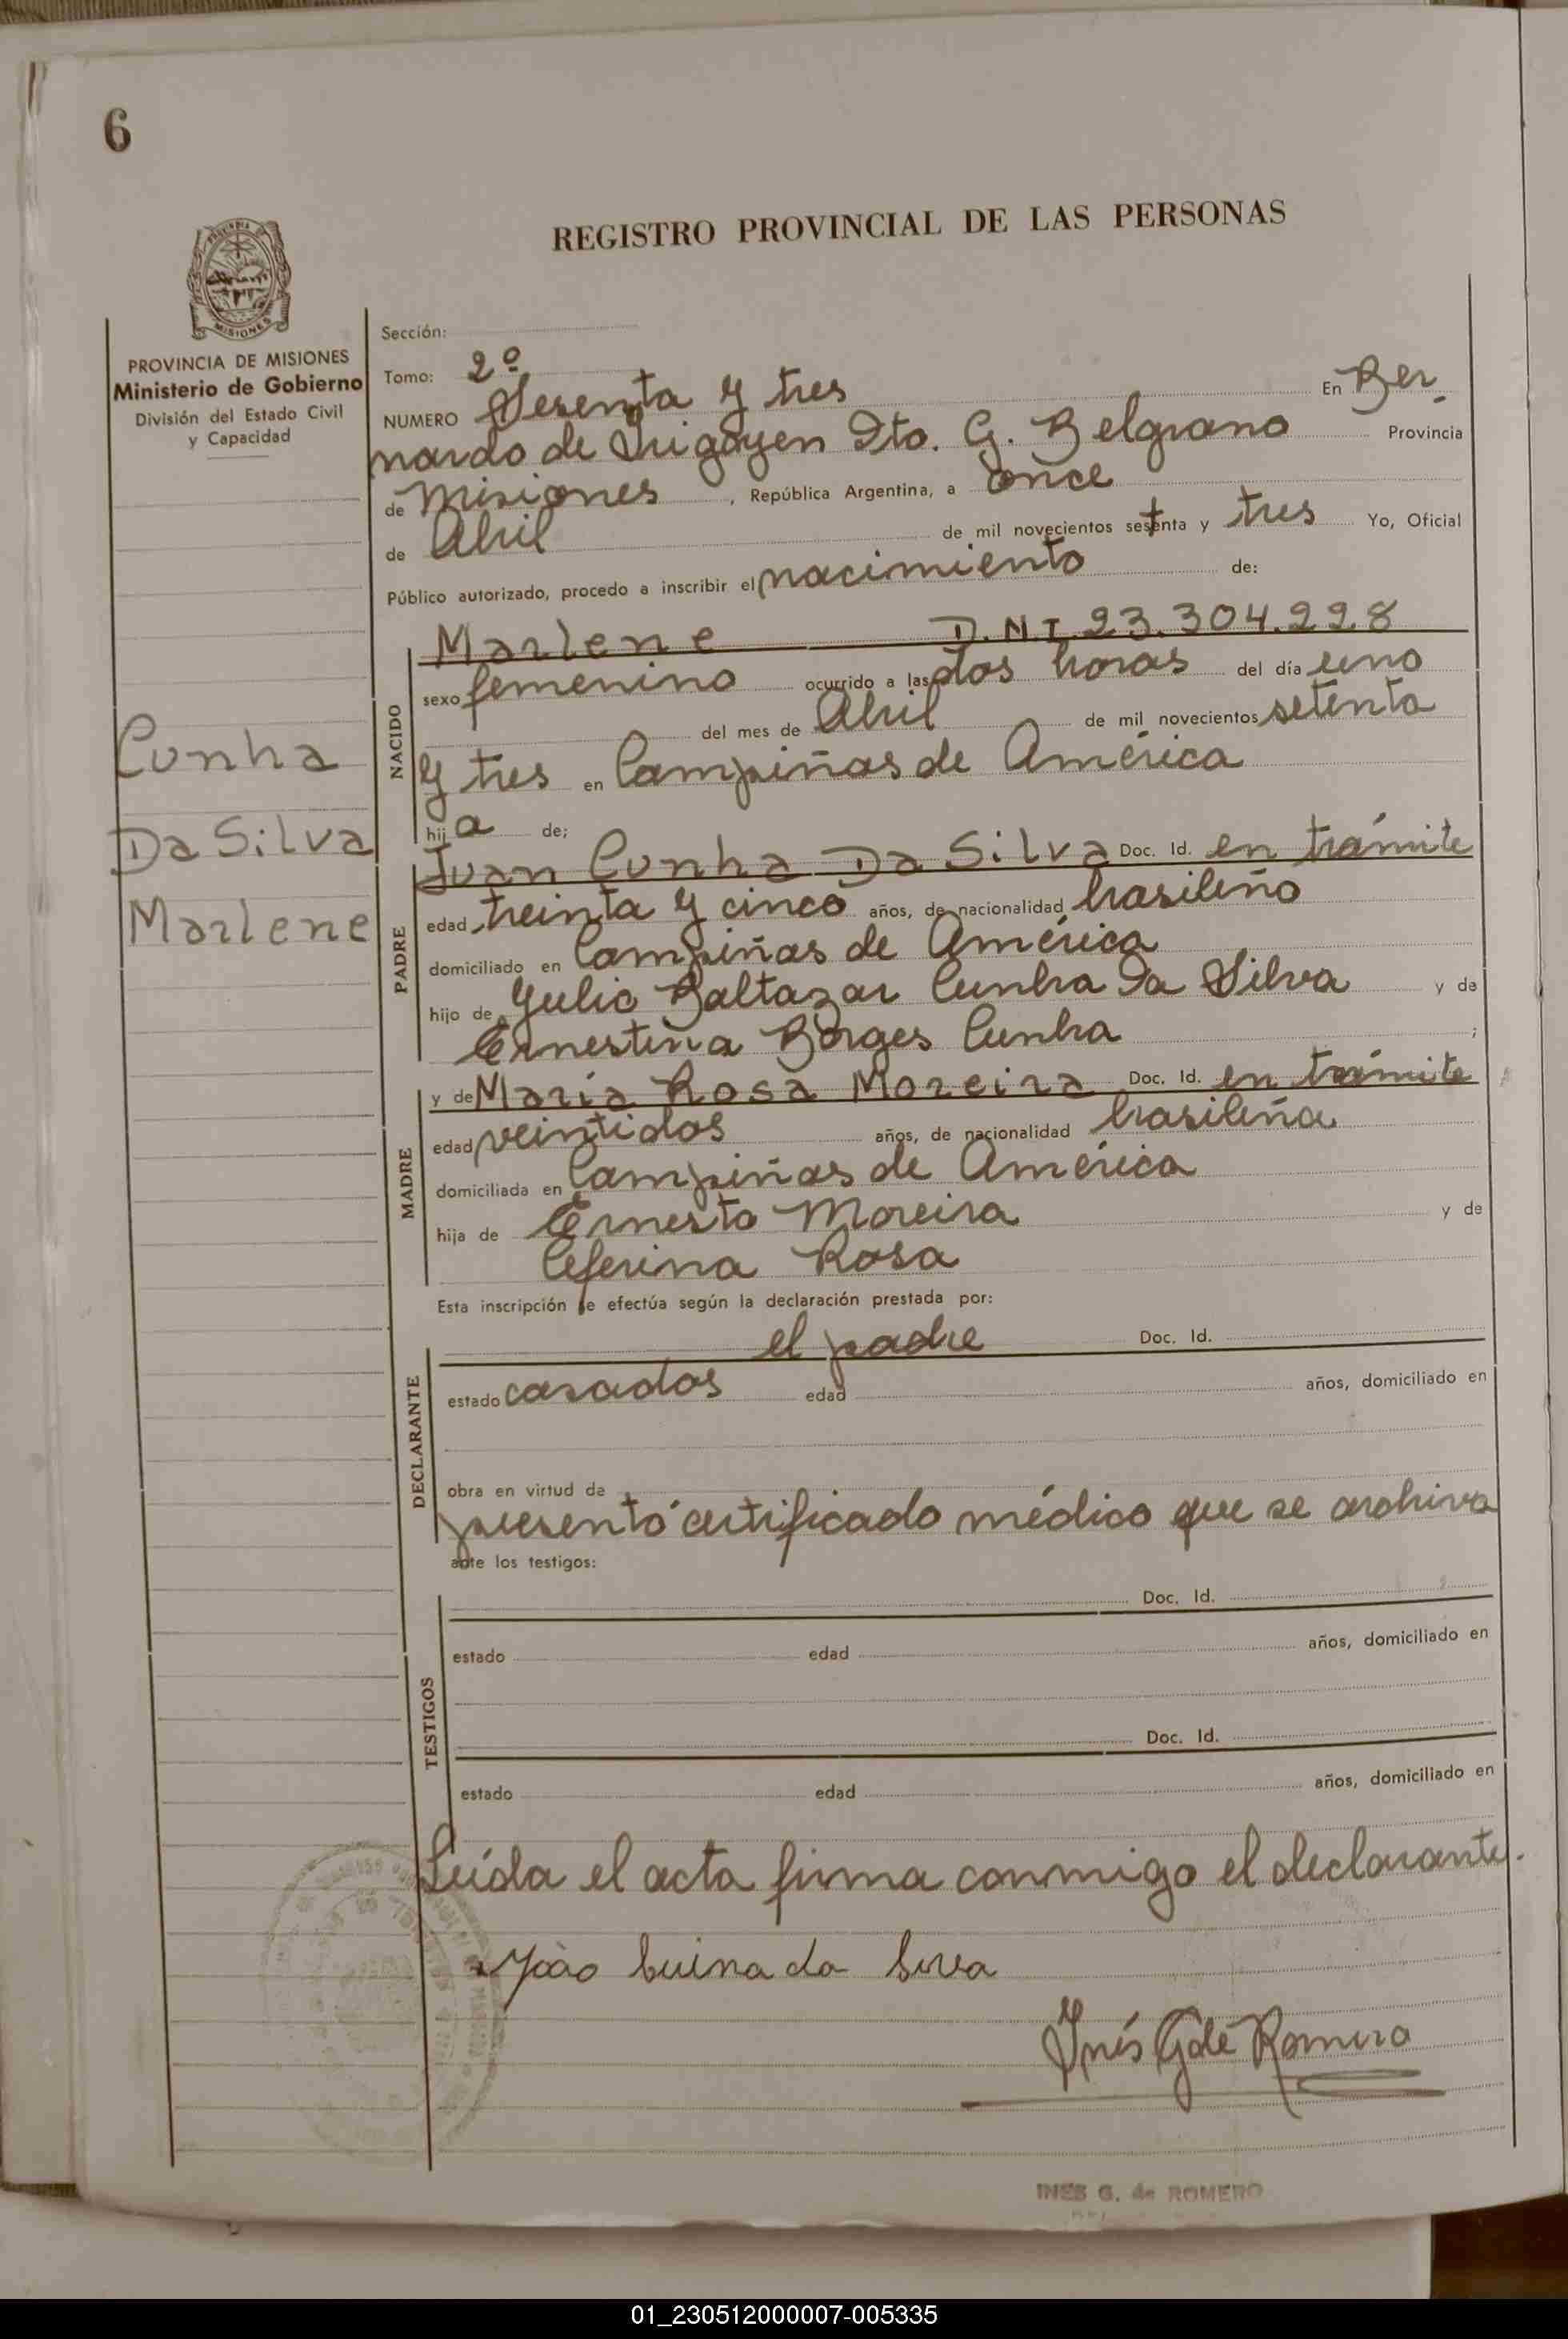 6
REGISTRO PROVINCIAL DE LAS PERSONAS
MISIONES
PROVINCIA DE MISIONES
Ministerio de Gobierno
División del Estado Civil
y Capacidad
Cunha
Da Silva
Marlene
Sección:
Tomo: 2º
NUMERO Sesenta y tres En Ber
nardo de Irigoyen Dto. G. Belgrano Provincia
de Misiones , República Argentina, a once
de Abril de mil novecientos setenta y tres Yo, Oficial
Público autorizado, procedo a inscribir el nacimiento de:
Marlene D.N.I. 23.304.228
NACIDO
sexo femenino ocurrido a las dos horas del día uno
del mes de Abril de mil novecientos setenta
y tres en Campiñas de América
hija de;
PADRE
Juan Cunha Da Silva Doc. Id. en trámite
edad treinta y cinco años, de nacionalidad brasileño
domiciliado en Campiñas de América
hijo de Julio Baltazar Cunha Da Silva y de
Ernestina Borges Cunha ;
MADRE
y de María Rosa Moreira Doc. Id. en trámite
edad veintidos años, de nacionalidad brasileña
domiciliada en Campiñas de América
hija de Ernesto Moreira y de
Ceferina Rosa
Esta inscripción se efectúa según la declaración prestada por:
DECLARANTE
el padre Doc. Id.
estado casados edad años, domiciliado en
obra en virtud de
presentó certificado médico que se archiva
ante los testigos:
TESTIGOS
Doc. Id.
estado edad años, domiciliado en
Doc. Id.
estado edad años, domiciliado en
Leída el acta firma conmigo el declarante.
João da
Inés G de Romero
INES G. de ROMERO
01_230512000007-005335